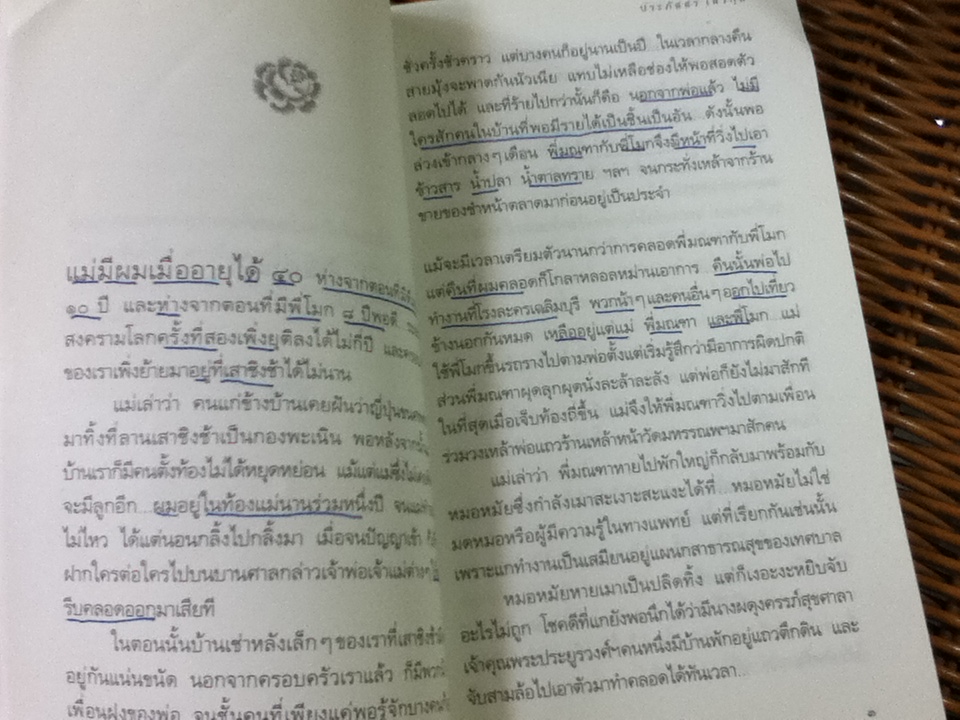 แม่มีผมเมื่ออายุได้ ๔๐ ห่างจากตอนที่มี
๑๐ ปี และห่างจากตอนที่มีพี่โมก ๘ ปีพอดี
สงครามโลกครั้งที่สองเพิ่งยุติลงได้ไม่กี่ปี และ
ของเราเพิ่งย้ายมาอยู่ที่เสาชิงช้าได้ไม่นาน
แม่เล่าว่า คนแก่ข้างบ้านเคยฝันว่าญี่ปุ่นขน
มาทิ้งที่ลานเสาชิงช้าเป็นกองพะเนิน พอหลังจาก
บ้านเราก็มีคนตั้งท้องไม่ได้หยุดหย่อน แม้แต่แม่ซึ่งไม่
จะมีลูกอีก...ผมอยู่ในท้องแม่นานร่วมหนึ่งปี จน
ไม่ไหว ได้แต่นอนกลิ้งไปกลิ้งมา เมื่อจนปัญญาเข้า
ฝากใครต่อใครไปบนบานศาลกล่าวเจ้าพ่อเจ้าแม่ต่างๆ ให้
รีบคลอดออกมาเสียที
ในตอนนั้นบ้านเช่าหลังเล็กๆ ของเราที่เสาชิงช้า
อยู่กันแน่นขนัด นอกจากครอบครัวเราแล้ว ก็มีพวก
เพื่อนฝูงของพ่อ จนชั้นคนที่เพียงแค่พอรู้จักบางคน
ชั่วครั้งชั่วคราว แต่บางคนก็อยู่นานเป็นปี ในเวลากลางคืน
สายมุ้งจะพาดกันนัวเนีย แทบไม่เหลือช่องให้พอสอดตัว
ลอดไปได้ และที่ร้ายไปกว่านั้นก็คือ นอกจากพ่อแล้ว ไม่มี
ใครสักคนในบ้านที่พอมีรายได้เป็นชิ้นเป็นอัน ดังนั้นพอ
ล่วงเข้ากลางๆ เดือน พี่มณฑากับพี่โมกจึงมีหน้าที่วิ่งไปเอา
ข้าวสาร น้ำปลา น้ำตาลทราย ฯลฯ จนกระทั่งเหล้าจากร้าน
ขายของชำหน้าตลาดมาก่อนอยู่เป็นประจำ
แม้จะมีเวลาเตรียมตัวนานกว่าการคลอดพี่มณฑากับพี่โมก
แต่คืนที่ผมคลอดก็โกลาหลอลหม่านเอาการ คืนนั้นพ่อไป
ทำงานที่โรงละครเฉลิมบุรี พวกน้าๆ และคนอื่นๆ ออกไปเที่ยว
ข้างนอกกันหมด เหลืออยู่แต่แม่ พี่มณฑา และพี่โมก แม่
ใช้พี่โมกขึ้นรถรางไปตามพ่อตั้งแต่เริ่มรู้สึกว่ามีอาการผิดปกติ
ส่วนพี่มณฑาผุดลุกผุดนั่งละล้าละลัง แต่พ่อก็ยังไม่มาสักที
ในที่สุดเมื่อเจ็บท้องถี่ขึ้น แม่จึงให้พี่มณฑาวิ่งไปตามเพื่อน
ร่วมวงเหล้าพ่อแถวร้านเหล้าหน้าวัดมหรรณพฯมาสักคน
แม่เล่าว่า พี่มณฑาหายไปพักใหญ่ก็กลับมาพร้อมกับ
หมอหมัยซึ่งกำลังเมาสะเงาะสะแงะได้ที่...หมอหมัยไม่ใช่
มดหมอหรือผู้มีความรู้ในทางแพทย์ แต่ที่เรียกกันเช่นนั้น
เพราะแกทำงานเป็นเสมียนอยู่แผนกสาธารณสุขของเทศบาล
หมอหมัยหายเมาเป็นปลิดทิ้ง แต่ก็เงอะงะหยิบจับ
อะไรไม่ถูก โชคดีที่แกยังพอนึกได้ว่ามีนางผดุงครรภ์สุขศาลา
เจ้าคุณพระประยูรวงศ์ฯคนหนึ่งมีบ้านพักอยู่แถวตึกดิน และ
จับสามล้อไปเอาตัวมาทำคลอดได้ทันเวลา...